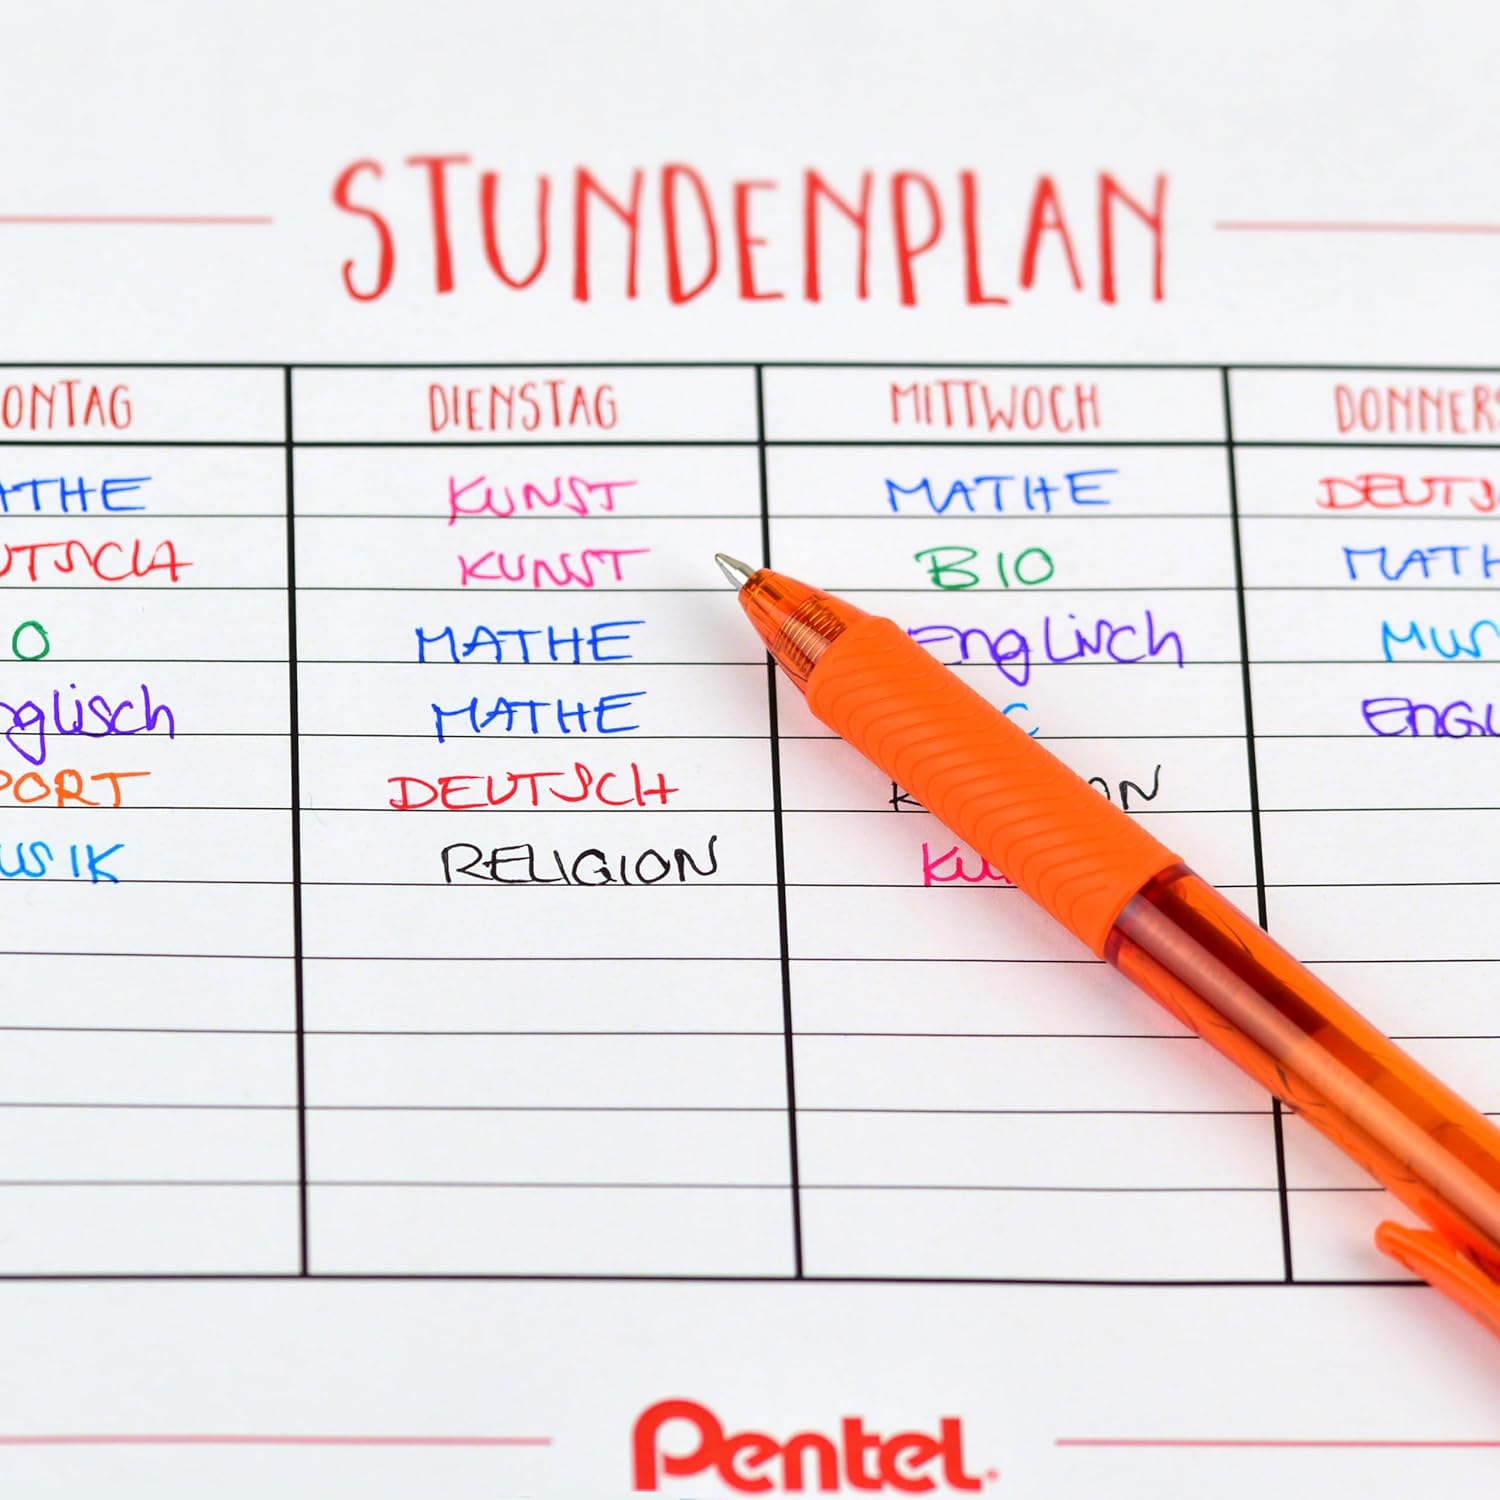 STUNDENPLAN
ONTAG DIENSTAG MITTWOCH DONNERS
ATHE KUNST MATHE DEUTS
UTSCH KUNST BIO MATH
O MATHE Englisch MUS
nglisch MATHE C ENGL
PORT DEUTSCH K ON
USIK RELIGION KU
Pentel